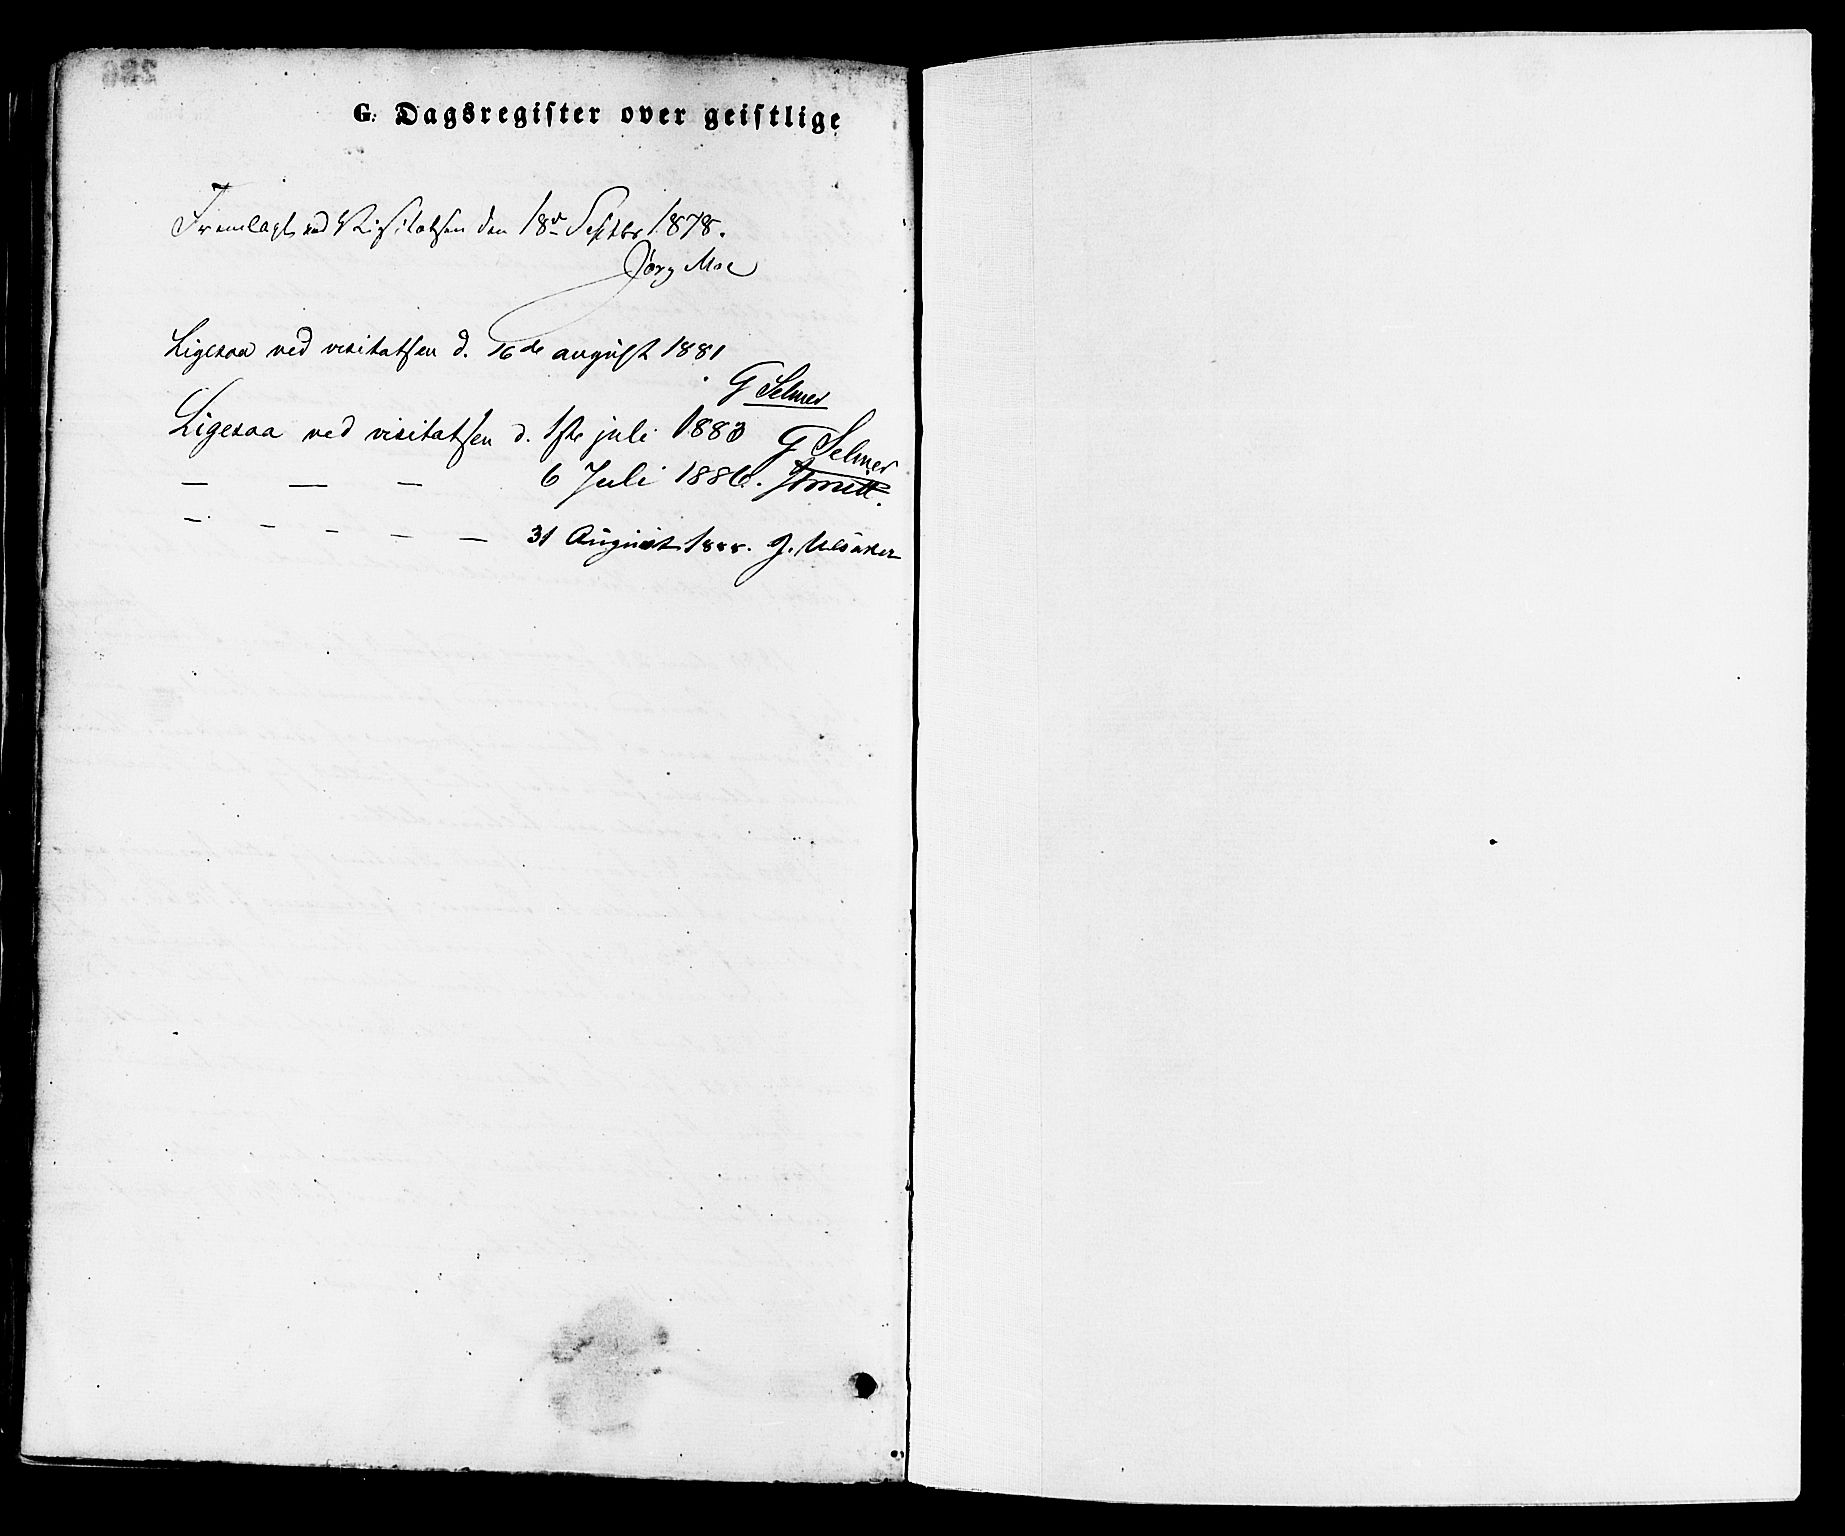 G: Dagsregister over geistlige
Fremlagt ved Visitatsen den 18de Septbr 1878.
Jørg Moe
Ligesaa ved visitatsen d. 16de august 1881
G Selmer
Ligesaa ved visitatsen d. 1ste juli 1883 G Selmer
— — — 6 Juli 1886.
— — — — — 31 August 1888. J.